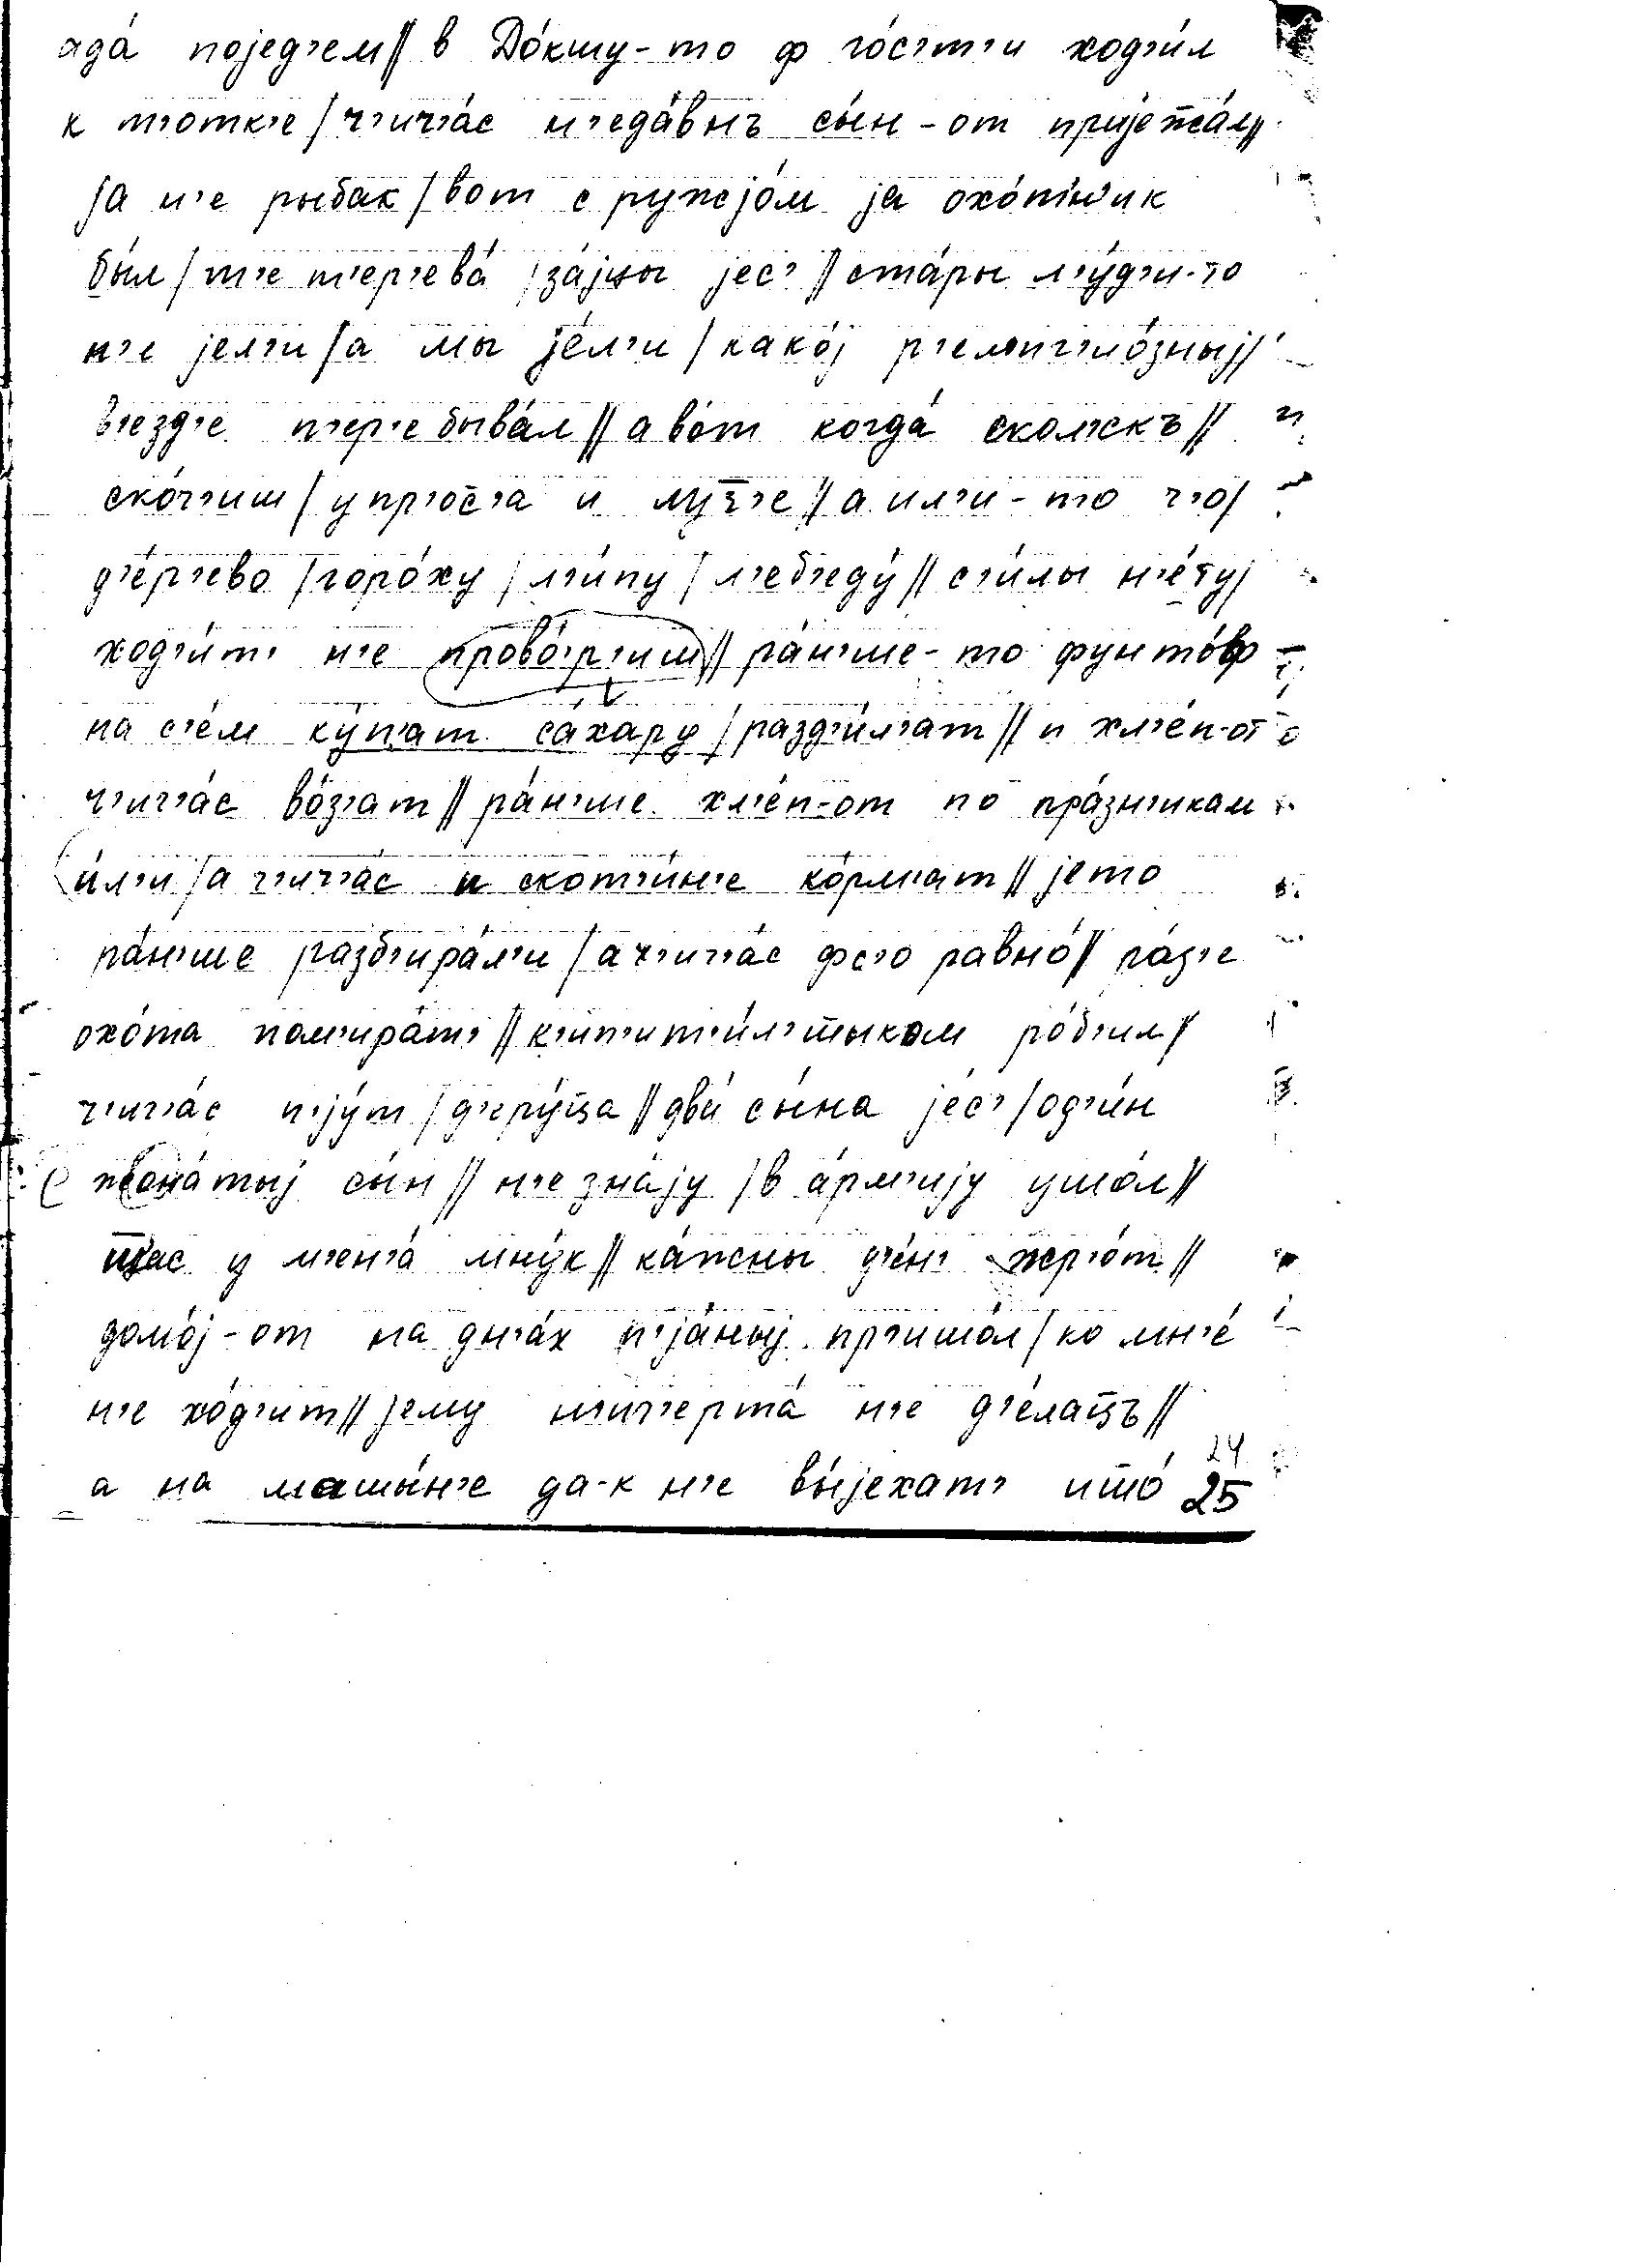 ада́ појед’ем // в До́кшу-то ф го́с’т’и ход’и́л
к т’отк’е / ч’ич’а́с н’еда́внъ сы́н-от пријеж̅а́л //
ја н’е рыбак / вот с ружјо́м ја охо́т’н’ик
бы́л / т’е т’ер’ева́ / за́јцы јес’ // ста́ры л’у́д’и-то
н’е јел’и / а мы је́л’и / како́ј
в’езд’е п’ер’ебыва́л // а во́т когда́ скол’скъ //
ско́ч’иш / упр’о̄с’а и луч̅’е // а ил’и-то ч’о /
д’е́р’ево / горо́ху / л’и́пу / л’еб’еду́ // с’и́лы н’е́ту /
ход’и́т’ н’е прово́р’иш // ра́н’ше-то фунто́ф
на с’е́м ку́п’ат са́хару / разд’и́л’ат // и хл’е́п-от
ч’ич’а́с во́з’ат // ра́н’ше хл’е́п-от по пра́зн’икам
и́л’и / а ч’ич’а́с и скот’и́н’е ко́рм’ат // јето
ра́н’ше разб’ира́л’и / а ч’ич’а́с фс’о равно́ // ра́з’е
охо́та пом’ира́т’ // ро́б’ил /
ч’ич’а́с п’ју́т / д’еру́ц̅а // дви́ сы́на је́с’ / од’и́н
жона́тыј сы́н // н’е зна́ју / в а́рм’ију ушо́л //
у м’ен’а́ мну́к // ка́жны д’е́н’ жр’о́т //
домо́ј-от на дн’а́х п’ја́ныј пр’ишо́л / ко мн’е́
н’е хо́д’ит // јему н’ич’ерта́ н’е д’е́лац̅ъ //
а на машы́н’е да-к н’е вы́јехат’ што́ 24
25